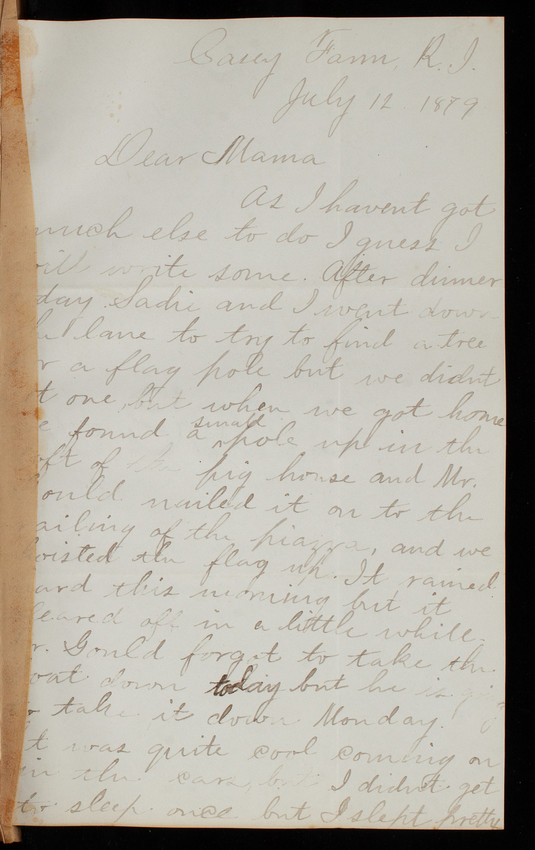 Casey Farm, R.I.
July 12 1879
Dear Mama
As I havent got
much else to do I guess I
will write some. After dinner
day Sadie and I went down
lane to try to find a tree
r a flag pole but we didnt
t one but when we got home
e found a small pole up in the
oft of the pig house and Mr.
ould nailed it on to the
ailing of the piazza, and we
oisted the flag up. It rained
ard this morning but it
leared off in a little while.
r. Gould forgot to take the
oat down today but he is
take it down Monday.
t was quite cool coming on
in the cars, but I didn't get
to sleep once but I slept pretty